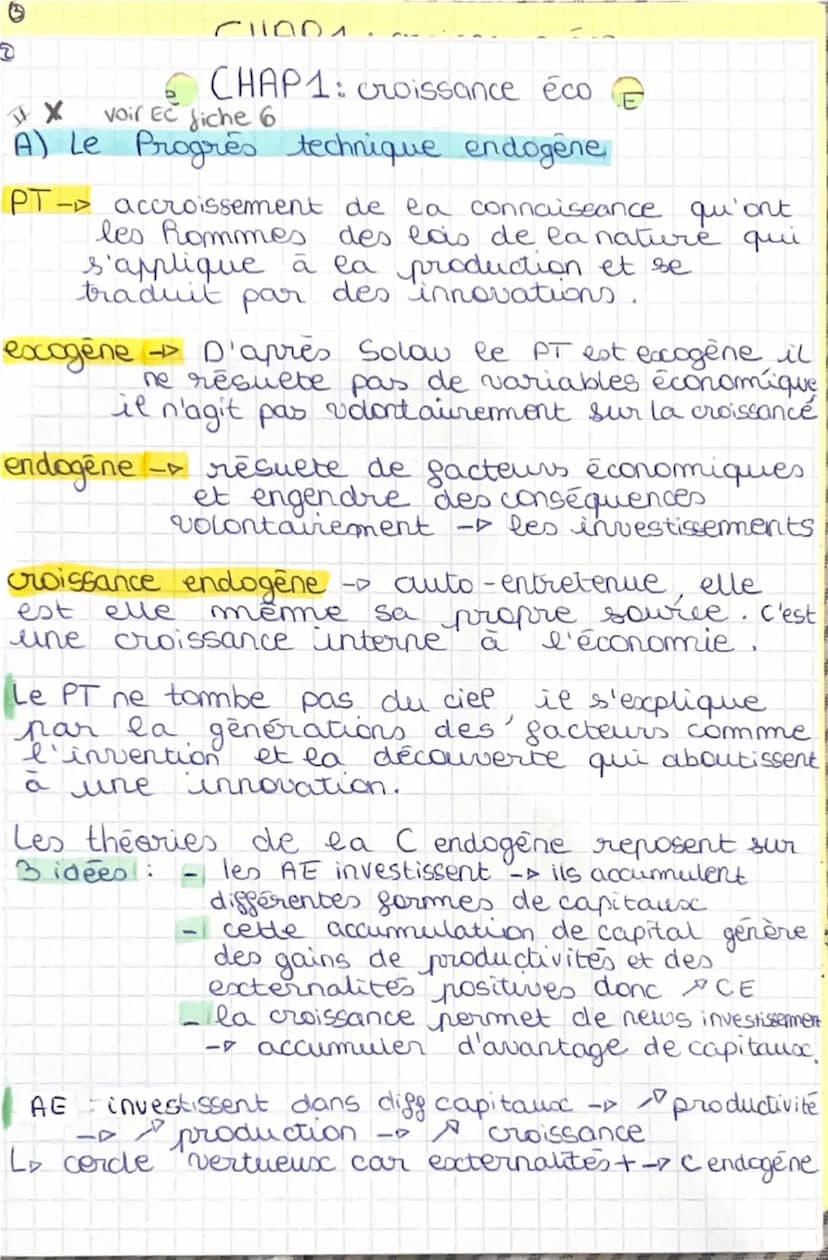 CHAP1: croissance éco
voir EC fiche 6
A) Le Progrès technique endogène
PT -> accroissement de la connaissance qu'ont
les hommes des lois de la nature qui
s'applique à la production et se
traduit par des innovations.
exogène -> D'après Solow le PT est exogène il
ne résulte pas de variables économique
il n'agit pas volontairement sur la croissance
endogène -> résulte de facteurs économiques
et engendre des conséquences
volontairement -> les investissements
croissance endogène -> auto-entretenue, elle
est elle même sa propre source. C'est
une croissance interne à l'économie.
Le PT ne tombe pas du ciel, il s'explique
par la générations des facteurs comme
l'invention et la découverte qui aboutissent
à une innovation.
Les théories de la C endogène reposent sur
3 idées : - les AE investissent -> ils accumulent
différentes formes de capitaux
- cette accumulation de capital génère
des gains de productivités et des
externalités positives donc ↗ CE
- la croissance permet de news investissement
-> accumuler d'avantage de capitaux.
AE : investissent dans diff capitaux -> ↗ productivité
-> ↗ production -> ↗ croissance
L> cercle vertueux car externalités + -> C endogène